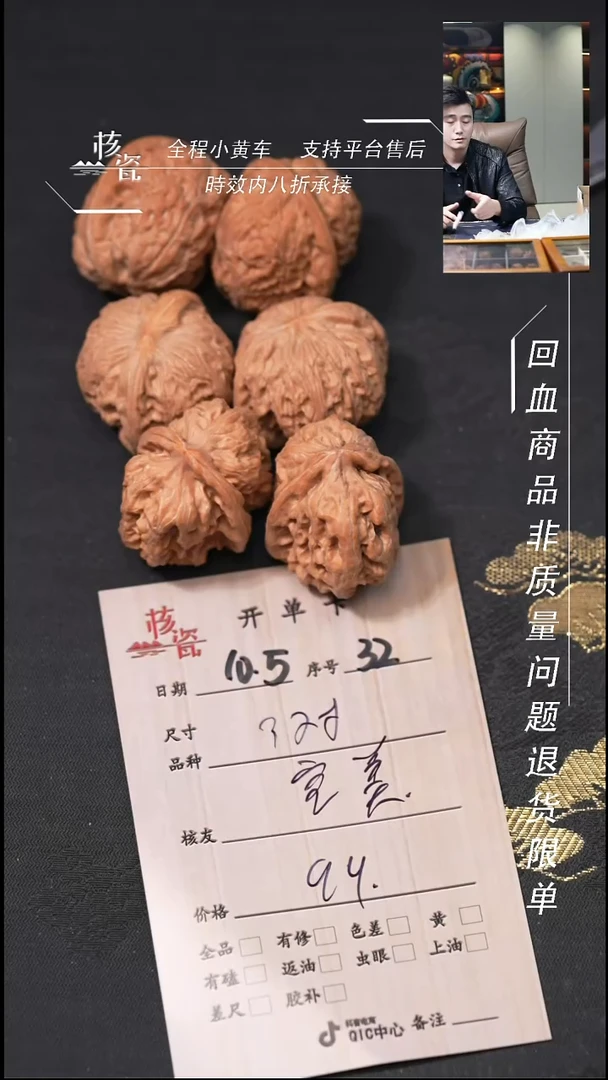 核瓷
全程小黄车 支持平台售后
時效内八折承接
回血商品非质量问题退货限单
核瓷
开单卡
日期 10.5 序号 32
尺寸 3对
品种
核友
价格 94.
全品 有修 色差 黄
有磕 返油 虫眼 上油
差尺 胶补
抖音电商
QIC中心 备注